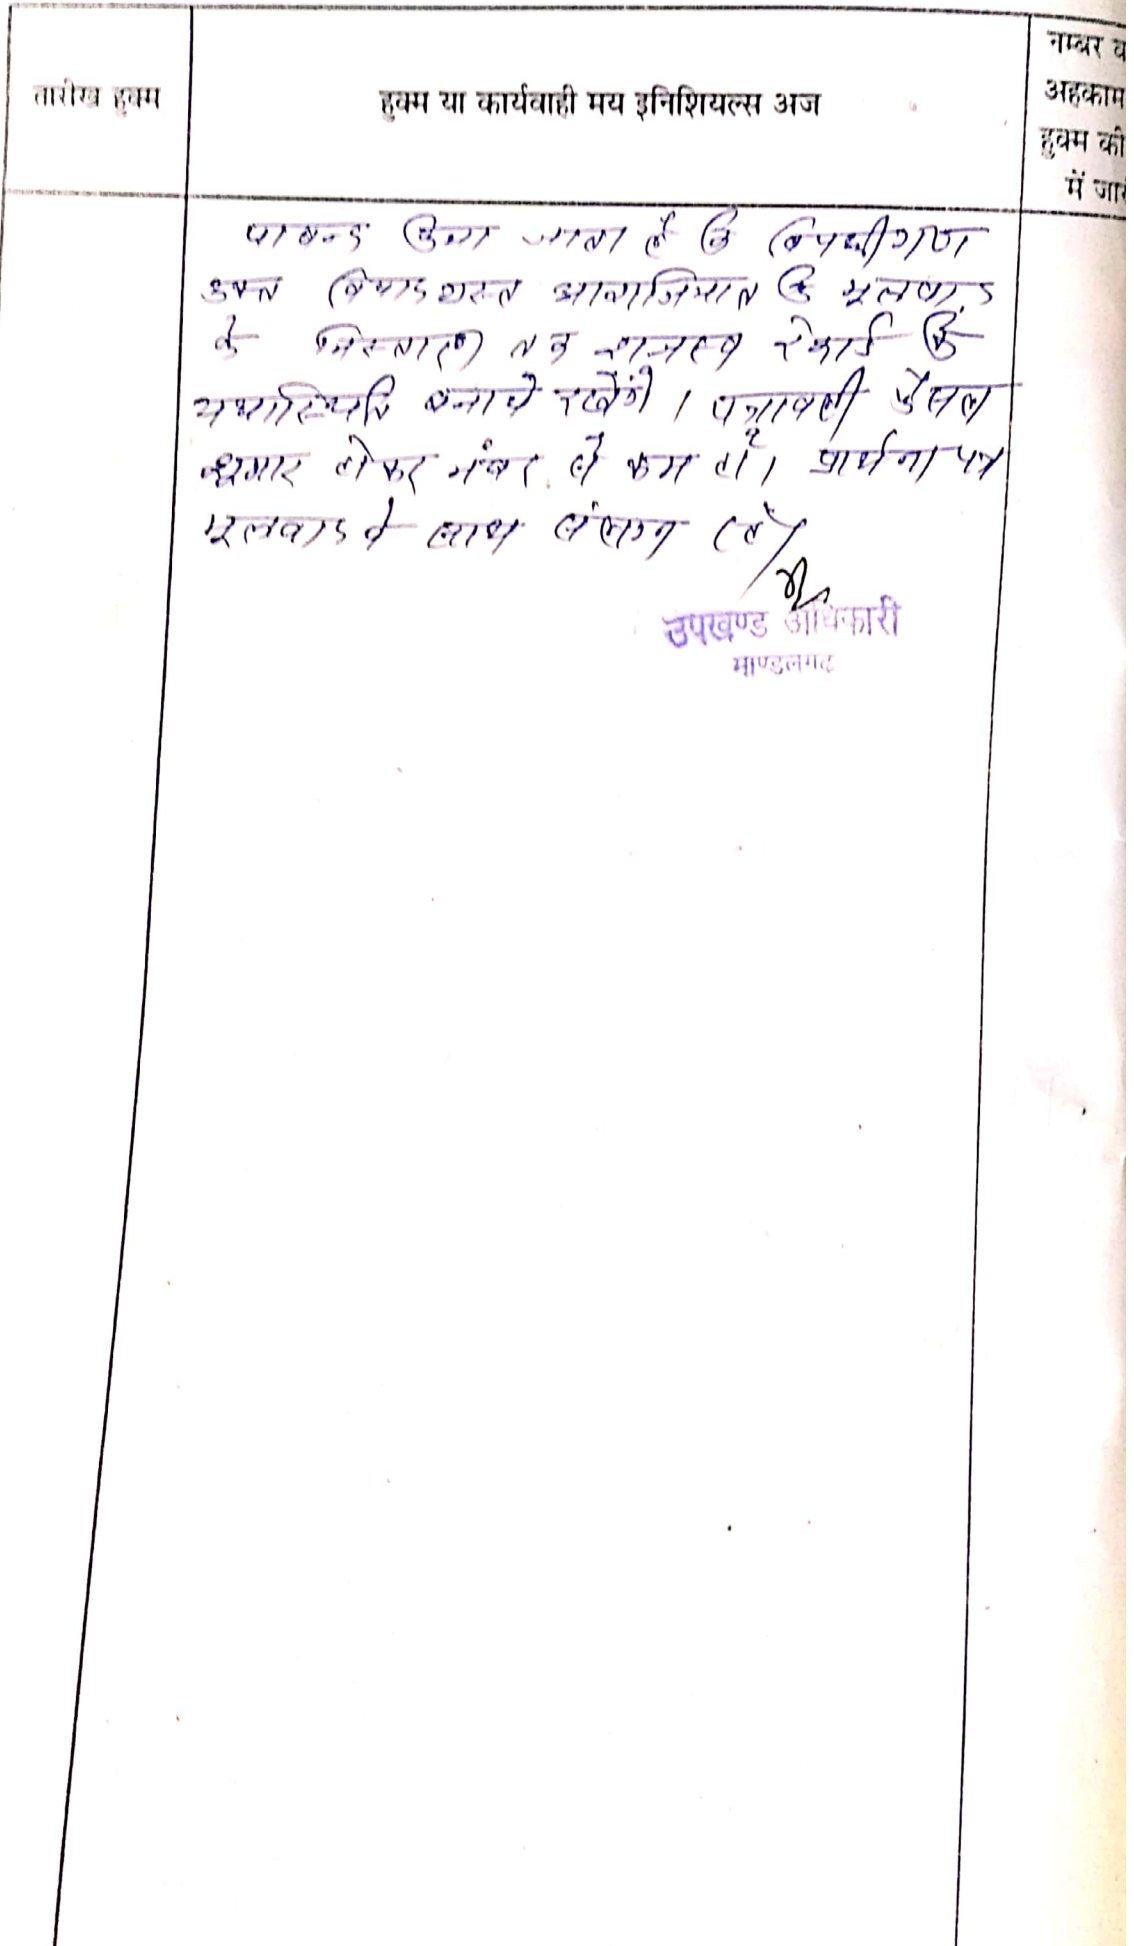 तारीख हुक्म
हुक्म या कार्यवाही मय इनिशियल्स अज
नम्बर व
अहकाम
हुक्म की
में जारी
पाबन्द किया जाता है कि विपक्षीगण
उक्त विवादग्रस्त आराजियात कि मूलवाद
के निस्तारण तक राजस्व रेकार्ड कि
यथास्थिति बनाये रखेंगे। पत्रावली फैसल
शुमार होकर नंबर से कम हो। प्रार्थना पत्र
मूलवाद के साथ संलग्न रहे।
उपखण्ड अधिकारी
माण्डलगढ